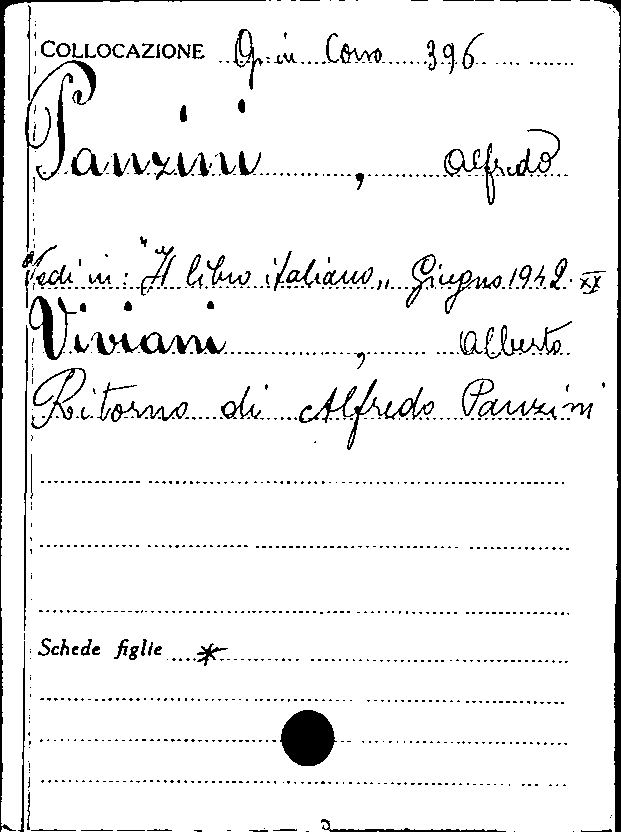 COLLOCAZIONE Op. in Corso 396
Panzini, Alfredo
Vedi in: "Il libro italiano„ Giugno 1942. XX
Viviani, Alberto
Ritorno di Alfredo Panzini
Schede figlie *